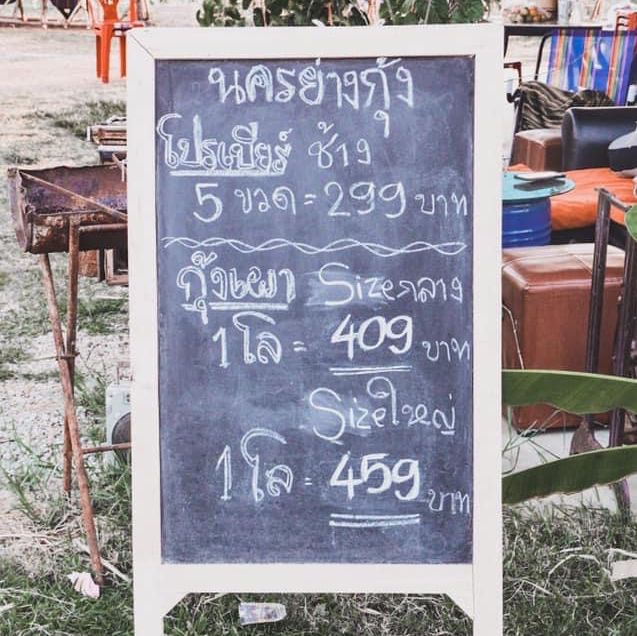 นครย่างกุ้ง
โปรเบียร์ ช้าง
5 ขวด = 299 บาท
กุ้งเผา Sizeกลาง
1 โล = 409 บาท
Sizeใหญ่
1 โล = 459 บาท